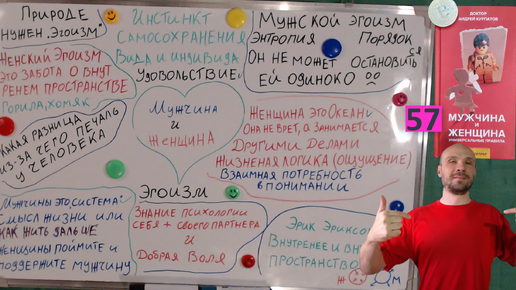 Природе
нужен "Эгоизм"
Инстинкт
Самосохранения
Вида и индивида
Удовольствие
Мужской эгоизм
Энтропия Порядок
Он не может остановиться
Ей одиноко
Женский Эгоизм
это забота о внут
ренем пространстве
Горила, хомяк
Какая разница
из-за чего печаль
у человека
Мужчина
и
Женщина
Женщина это Океан
Она не врет, а занимается
Другими делами
Жизненая логика (ощущение)
Взаимная потребность
в понимании
57
Мужчины это система:
Смысл жизни или
как жить дальше
Женщины поймите и
поддержите мужчину
Эгоизм
Знание психологии
себя + своего партнера
и
Добрая Воля
Эрик Эриксон
Внутренее и вн
пространство
Ж
М
ДОКТОР
АНДРЕЙ КУРПАТОВ
МУЖЧИНА
И
ЖЕНЩИНА
УНИВЕРСАЛЬНЫЕ ПРАВИЛА